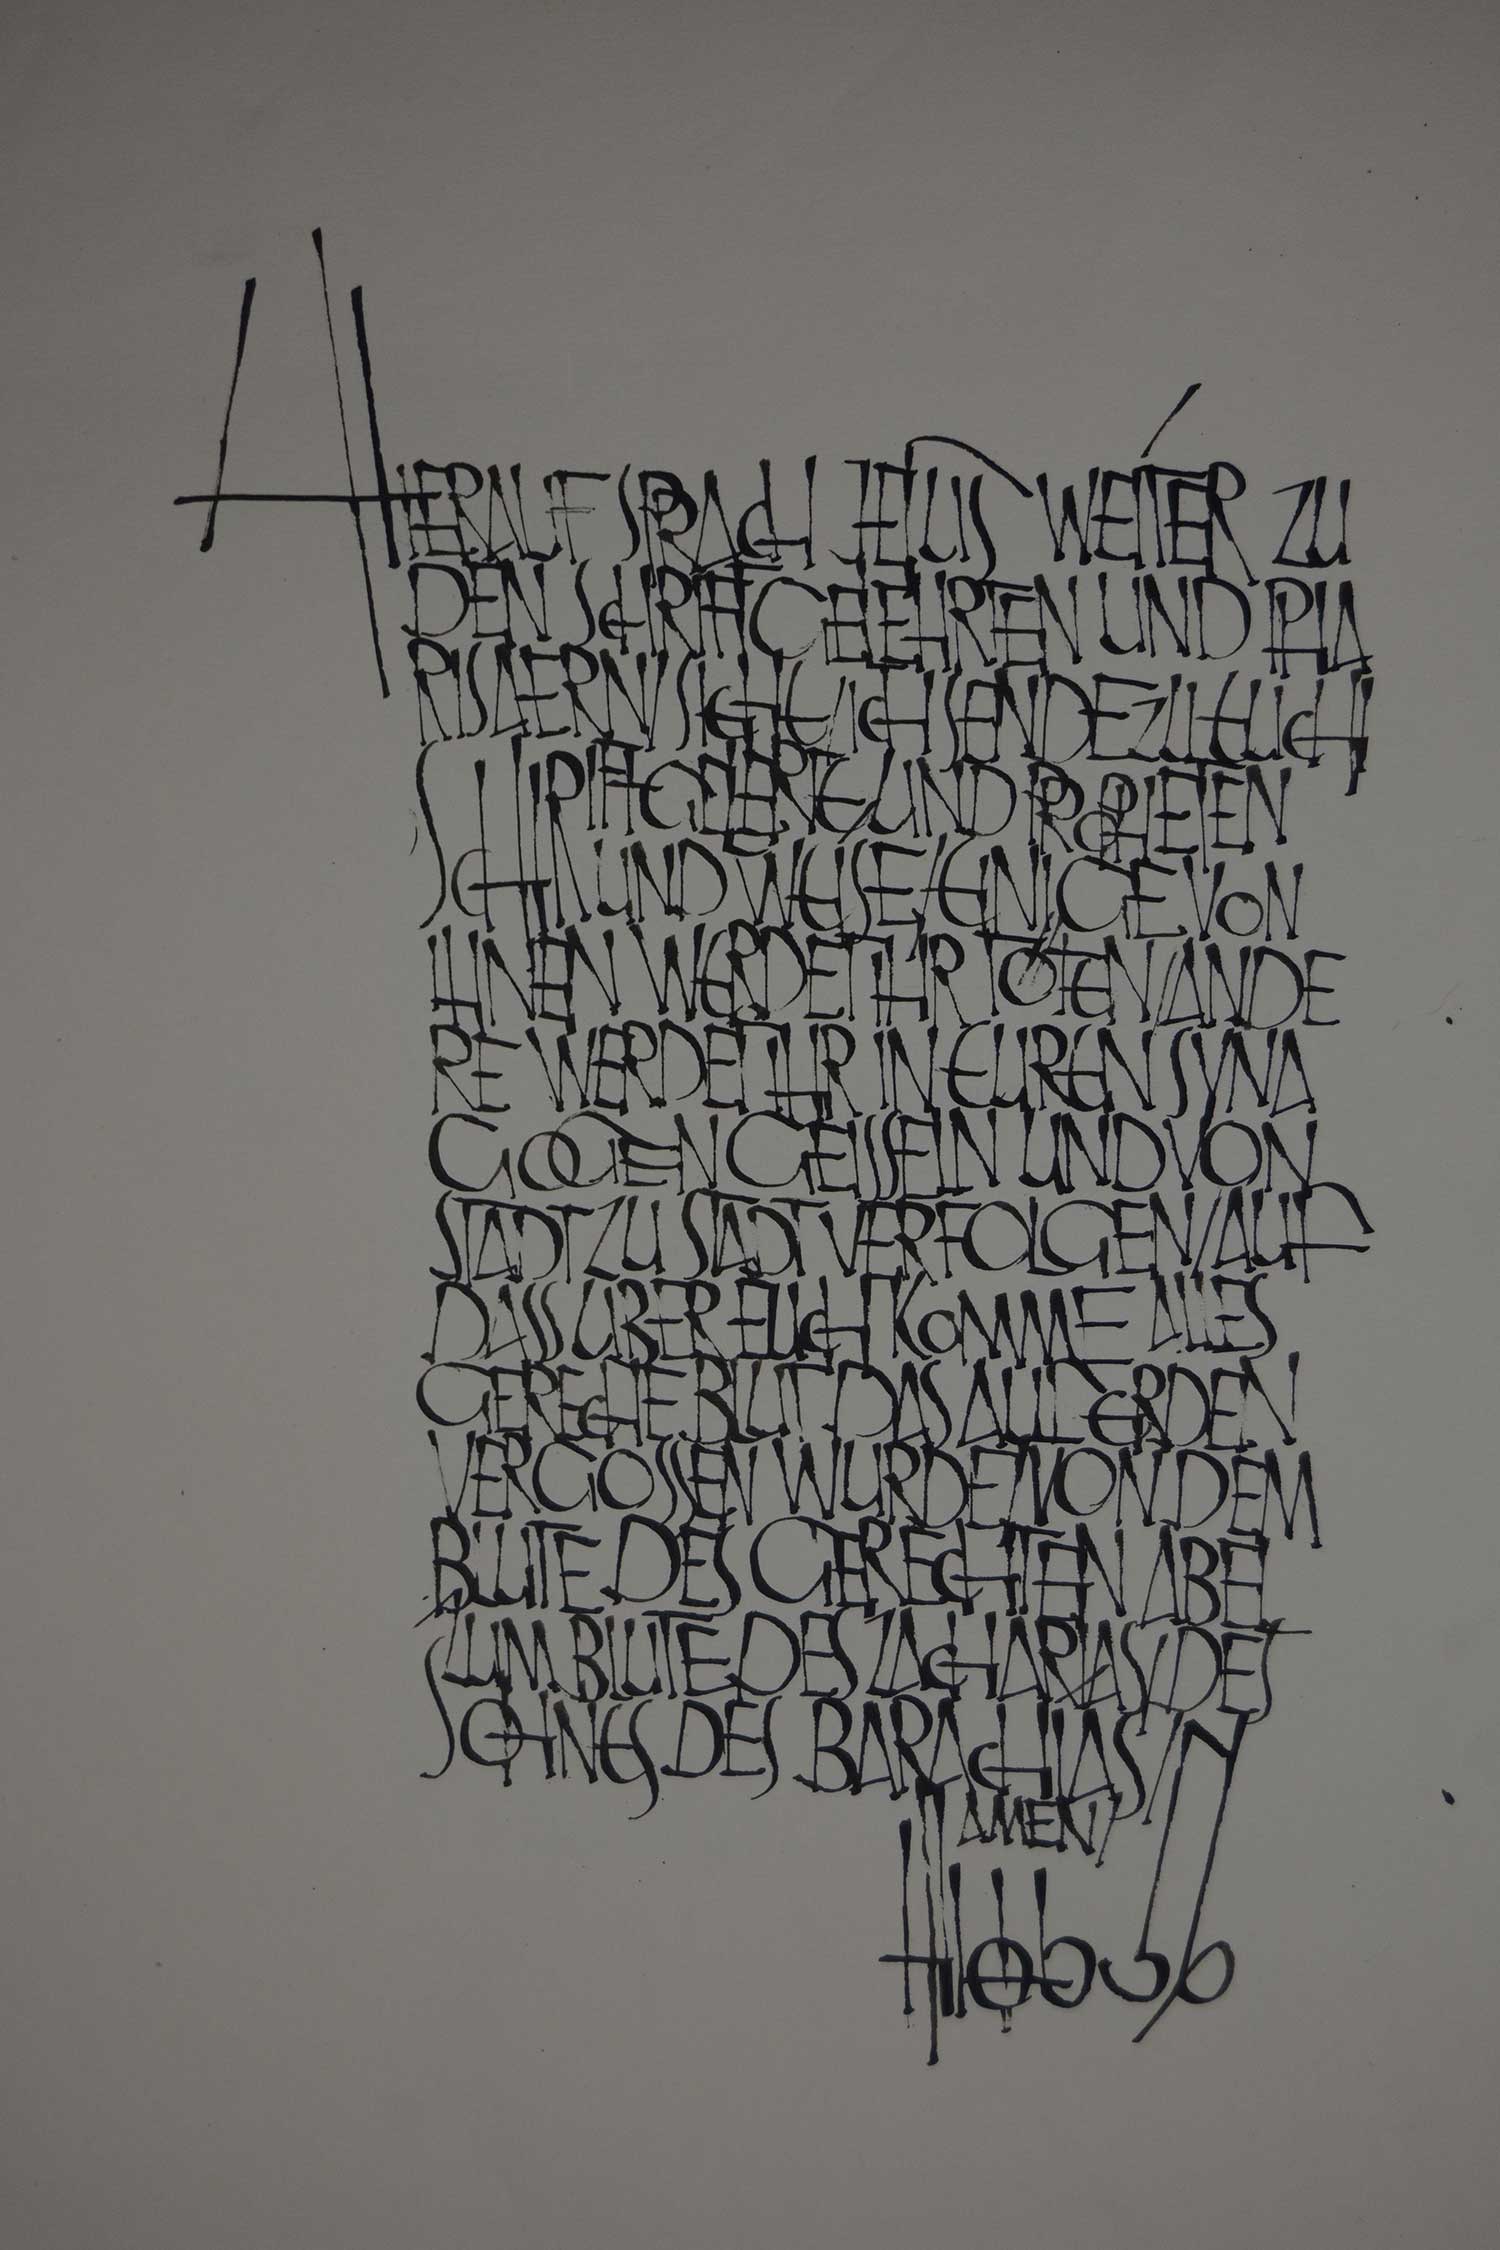 HIERAUF SPRACH JESUS WEITER ZU
DEN SCHRIFTGELEHRTEN UND PHA
RISAERN/SIEHE/ICH SENDE ZU EUCH
SCHRIFTGELERTE UND PROPHETEN
SCHIN UND WEISE/EINIGE VON
IHNEN WERDET IHR TÖTEN/ANDE
RE WERDET IHR IN EUREN SYNA
GOGEN GEISSELN UND VON
STADT ZU STADT VERFOLGEN/AUF
DASS ÜBER EUCH KOMME ALLES
GERECHTE BLUT DAS AUF ERDEN
VERGOSSEN WURDE/VON DEM
BLUTE DES GERECHTEN ABEL
ZUM BLUTE DES ZACHARIAS/DES
SOHNES DES BARACHIAS/
AMEN/